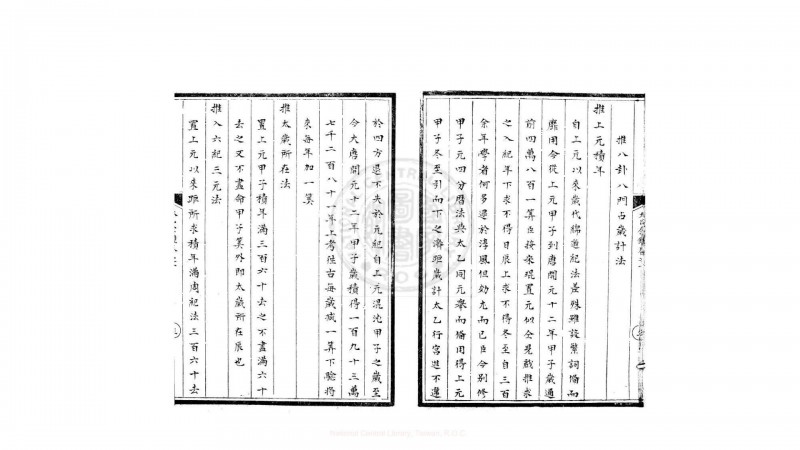 推八卦八門占歲計法
推上元積年
自上元以來歲代綿邈紀法差殊雖設繁詞備而
靡用今從上元甲子到唐開元十二年甲子歲通
前四萬八百一算臣按來琨置元似全覺疏推求
之入紀年下求不得日辰上求不得冬至自三百
余年學者何多迷於淳風但効尤而已臣今別修
甲子元四分曆法與太乙同元舉而備用得上元
甲子冬至引而下之濟距歲計太乙行宮進不違
於四方退不失於元紀自上元混沌甲子之歲至
今大唐開元十二年甲子歲積得一百九十三萬
七千二百八十一年上考往古每歲減一算下驗將
來每年加一算
推太歲所在法
置上元甲子積年滿三百六十去之不盡滿六十
去之又不盡命甲子算外即太歲所在辰也
推入六紀三元法
置上元以來距所求積年滿周紀法三百六十去